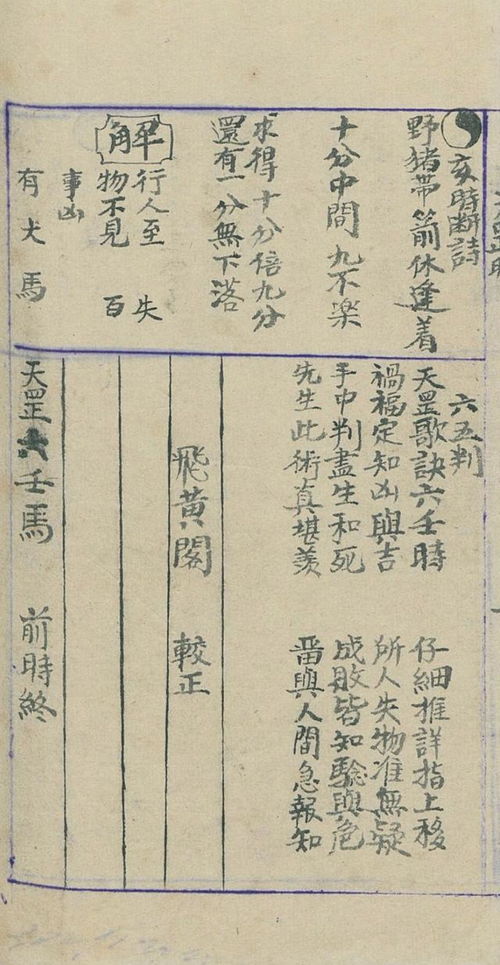 亥時断詩
野猪帶箭休逢着
十分中間九不楽
求得十分倍九分
還有一分無下落
解
行人至 失
物不見 百
事凶
有犬馬
六壬判
天罡歌訣六壬時 仔細推詳指上移
禍福定知凶與吉 所人失物准無疑
手中判盡生和死 成敗皆知驗與危
先生此術真堪羨 畨與人間急報知
飛黄閣 較正
天罡六壬馬前時終